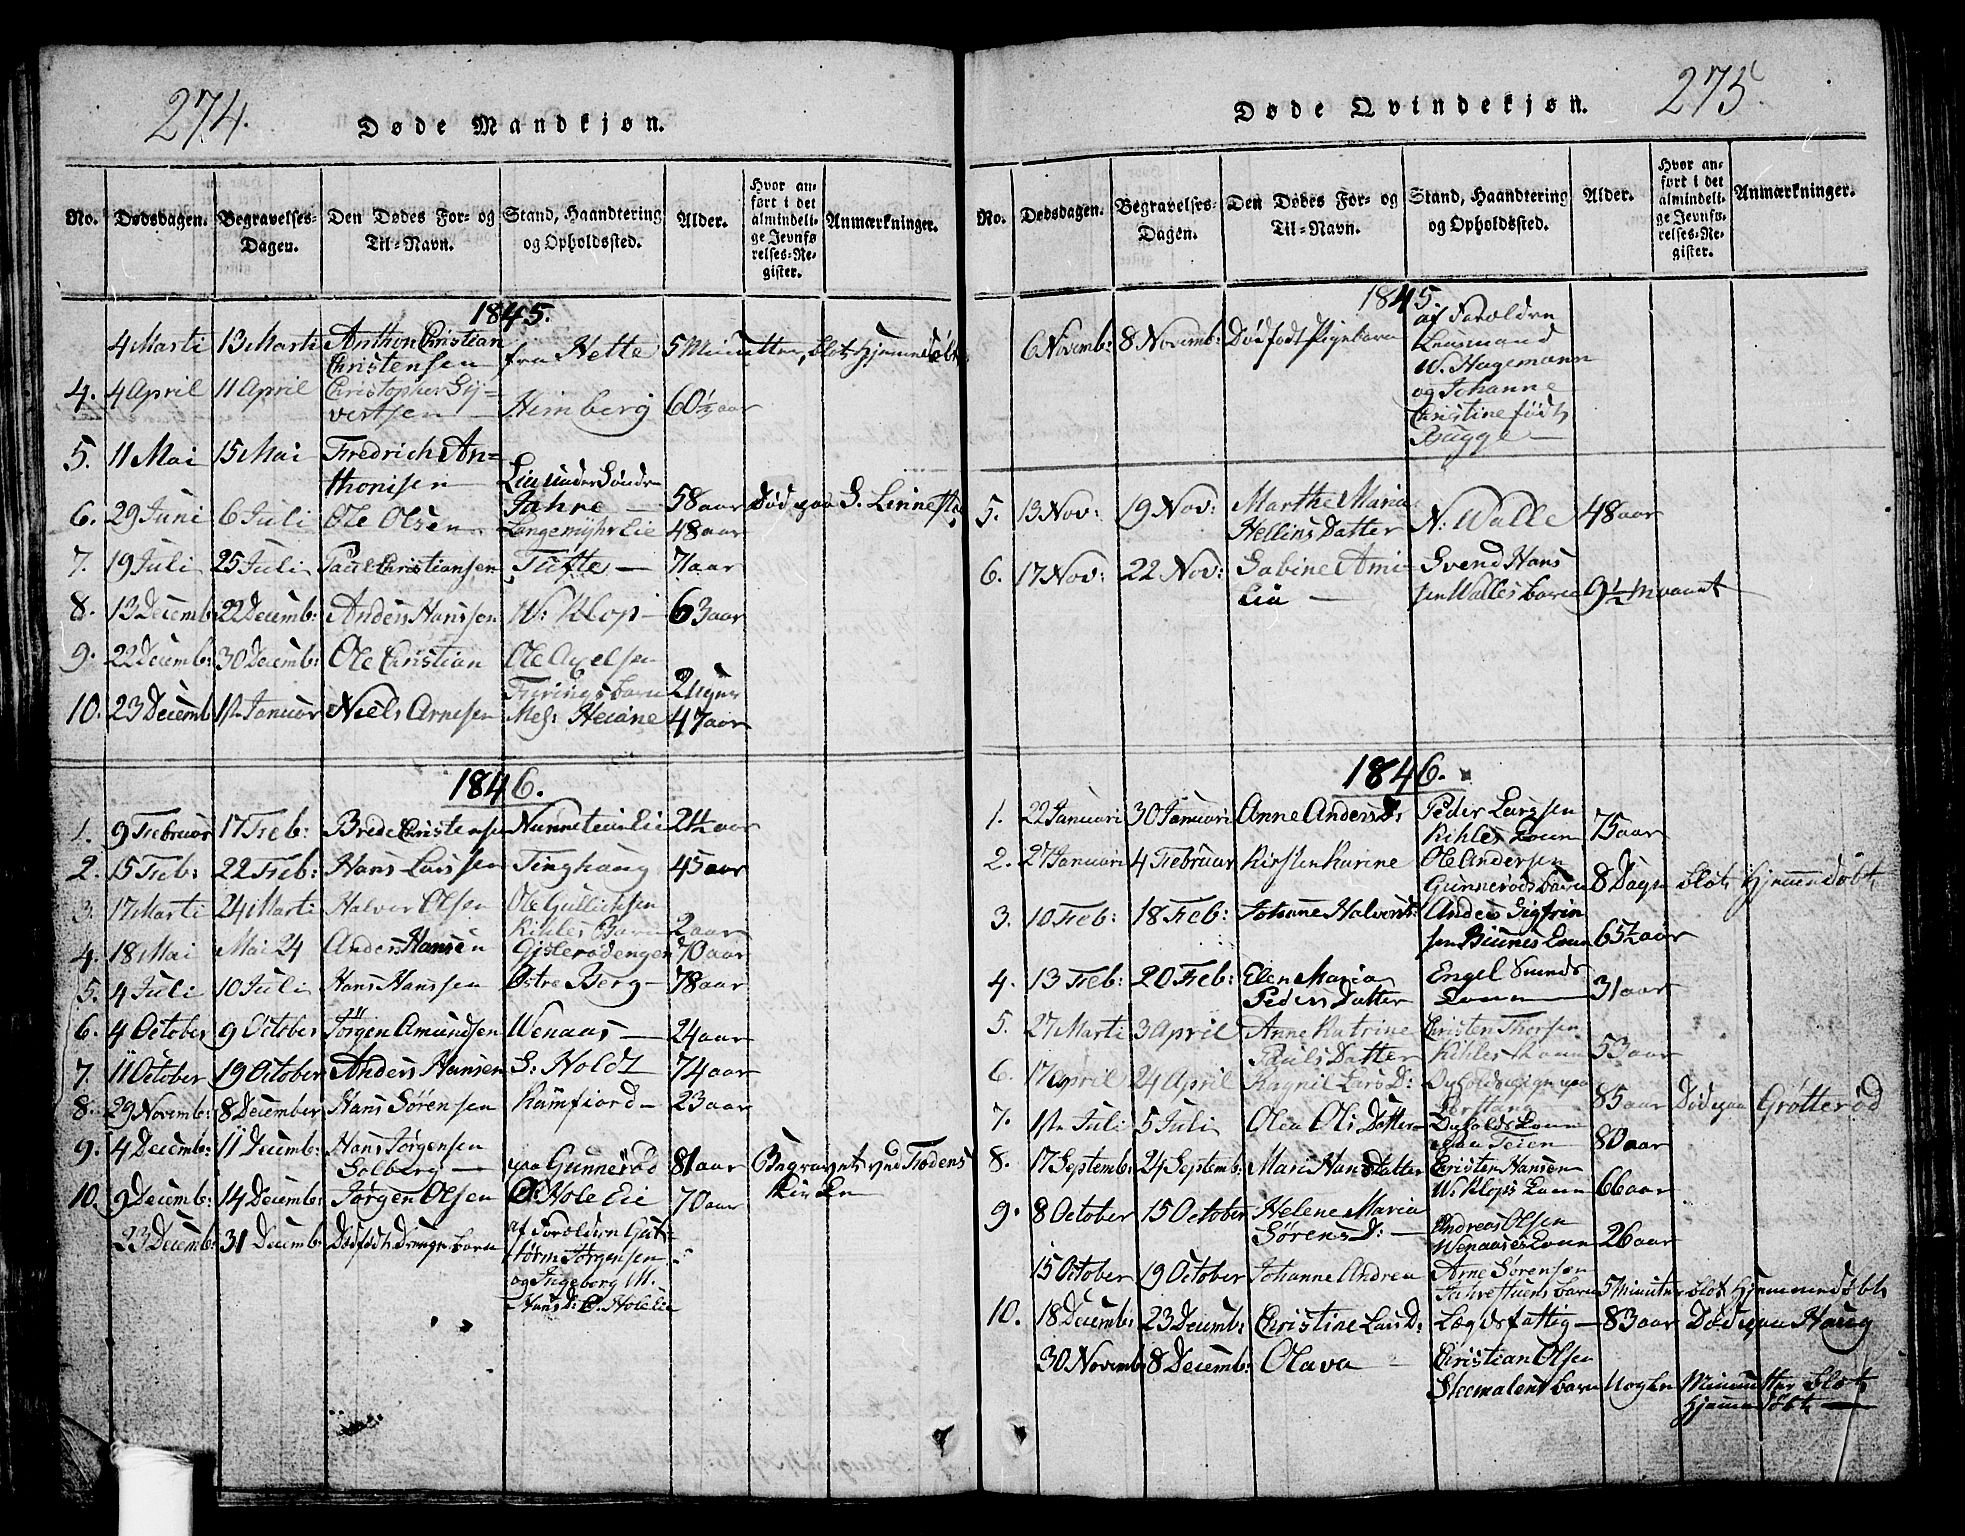 274.
Døde Mandkjøn.
No. Dødsdagen. Begravelses-Dagen. Den Dødes For- og Til-Navn. Stand, Haandtering og Opholdssted. Alder. Hvor anført i det almindelige Jevnførelses-Register. Anmærkninger.
1845.
4 Marti 13 Marti Anthon Christian fra Nette 5 Minutter, blot Hjemmedøbt
Christensen
4. 4 April 11 April Christopher Sy=
vertsen Heimberg 60½ aar
5. 11 Mai 15 Mai Fredrich An=
thonisen Lie under Søndre Jahre 58 aar Død paa S. Linnesta
6. 29 Juni 6 Juli Ole Olsen Langemyhr Eie 48 aar
7. 19 Juli 25 Juli Paul Christiansen Tufte 71 aar
8. 13 Decemb: 22 Decemb: Anders Hanssen W: Klop 63 aar
9. 22 Decemb: 30 Decemb: Ole Christian Ole Axelsen
barn 2 Uger
10. 23 Decemb: 1ste Januar Niels Arnesen 47 aar
1846.
1. 9 Februar 17 Feb: Brede Christensen Eie 21½ aar
2. 15 Feb: 22 Feb: Hans Larssen Tinghaug 45 aar
3. 17 Marti 24 Marti Halvor Olsen Ole Gullichsen
Kihles Barn 2 aar
4. 18 Mai Mai 24 Anders Hansen Gislerødengen 70 aar
5. 4 Juli 10 Juli Hans Hanssen Østre Berg 78 aar
6. 4 October 9 October Jørgen Amundsen Wenaas 24 aar
7. 11 October 19 October Anders Hansen S: Holdt 74 aar
8. 29 Novemb: 8 December Hans Sørensen Ramfiord 23 aar
9. 4 Decemb: 11 Decemb: Hans Jørgensen
Solberg paa Gunnerød 81 aar Begravet ved Fødens
Kirke
10. 9 Decemb: 14 Decemb: Jørgen Olsen Ø: Hole Eie 70 aar
23 Decemb: 31 Decemb: Dødfødt Drengebarn af Forældren Gut
torm Jørgensen
og Ingeborg M.
Hansd: Ø. Hole Eie
275.
Døde Qvindekjøn.
No. Dødsdagen. Begravelses-Dagen. Den Dødes For- og Til-Navn. Stand, Haandtering og Opholdssted. Alder. Hvor anført i det almindelige Jevnførelses-Register. Anmærkninger.
1845.
6 Novemb: 8 Novemb: Dødfødt Pigebarn af Forældren
Lensmand
W. Hagemann
og Johanne
Christine født
Bugge
5. 13 Nov: 19 Nov: Marthe Maria
Hellins Datter N: Walle 48 aar
6. 17 Nov: 22 Nov: Sabine Ami
lia Svend Hans
sen Walles barn 9½ maanet
1846.
1. 22 Januari 30 Januari Anne Anders D: Peder Larssen
Kihles Kone 75 aar
2. 27 Januari 4 Februar Kirsten Karine Ole Andersen
Gunnerøds barn 8 Dage blot Hjemmedøbt
3. 10 Feb: 18 Feb: Johanne Halvors D: Anders Sigfrin
sen Kone 65½ aar
4. 13 Feb: 20 Feb: Elen Maria
Peders Datter Engel
Kone 31 aar
5. 27 Marti 3 April Anne Katrine
Pauls Datter Christen Thorsen
Kihles Kone 53 aar
6. 17 April 24 April Ragnil Lars D: 85 aar Død paa Grøtterød
7. 1ste Juli 5 Juli Olea Ols Datter
paa Teien 80 aar
8. 17 Septemb: 24 Septemb: Mari Hans Datter Christen Hansen
W: Klops Kone 66 aar
9. 8 October 15 October Helene Maria
Sørens D: Andreas Olsen
Wenaases Kone 26 aar
15 October 19 October Johanne Andrea Arne Sørensen
Jahrestuens barn 5 Minuter blot Hjemmedøbt
10. 18 Decemb: 23 Decemb: Christine Lars D: Lægdsfattig 83 aar Død paa Haug
30 Novemb: 8 Decemb: Olava Christian Olsen
barn Nogle Minutter blot
Hjemmedøbt